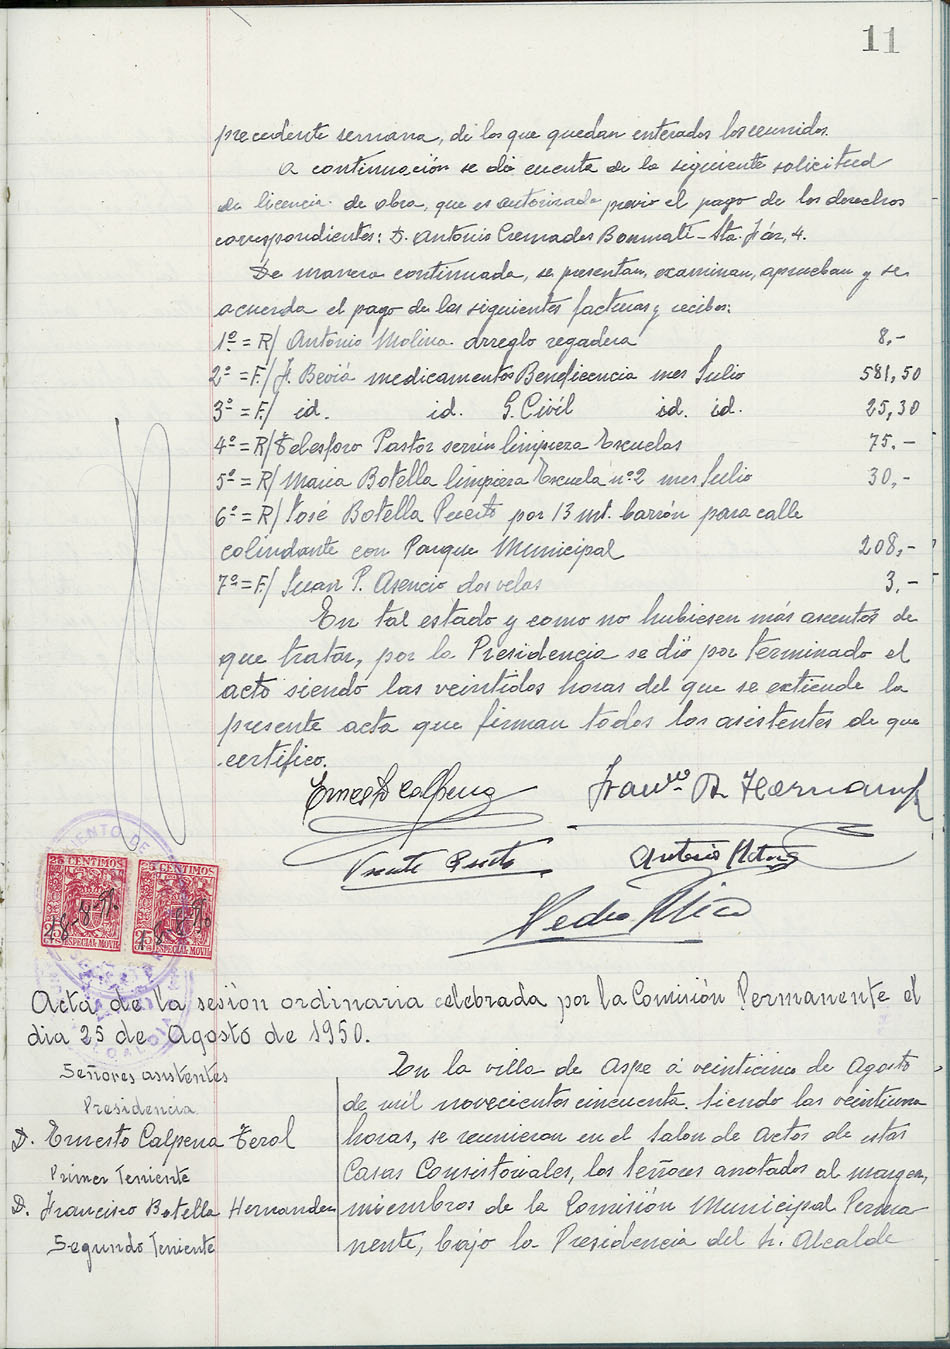 11
precedente semana, de los que quedan enterados los reunidos.
A continuación se dá cuenta de la siguiente solicitud
de licencia de obra, que es autorizada previo el pago de los derechos
correspondientes: D. Antonio Cremades Bonmatí - Sta. Faz, 4.
De manera continuada, se presentan, examinan, aprueban y se
acuerda el pago de las siguientes facturas y recibos:
1º = R/ Antonio Molina arreglo regadera 8,-
2º = F/ J. Beviá medicamentos Beneficencia mes Julio 581,50
3º = F/ id. id. G. Civil id. id. 25,30
4º = R/ Telesforo Pastor serrín limpieza Escuelas 75.-
5º = R/ Maria Botella limpieza Escuela nº 2 mes Julio 30,-
6º = R/ José Botella Puerto por 13 mt. barrón para calle
colindante con Parque Municipal 208,-
7º = F/ Juan P. Asencio dos velas 3.-
En tal estado y como no hubiesen más asuntos de
que tratar, por la Presidencia se dió por terminado el
acto siendo las veintidos horas del que se extiende la
presente acta que firman todos los asistentes de que
certifico.
Ernesto Calpena
Franco B. Hernandez
Vicente
Antonio
Pedro
25 CENTIMOS 25 CENTIMOS
18-8-50 18-8-50
ESPECIAL MOVIL ESPECIAL MOVIL
Acta de la sesión ordinaria celebrada por la Comisión Permanente el
dia 25 de Agosto de 1950.
Señores asistentes
Presidencia
D. Ernesto Calpena Terol
Primer Teniente
D. Francisco Botella Hernandez
Segundo Teniente
En la villa de Aspe á veinticinco de Agosto
de mil novecientos cincuenta. Siendo las veintiuna
horas, se reunieron en el Salon de Actos de estas
Casas Consistoriales, los Señores anotados al margen,
miembros de la Comisión Municipal Perma
nente, bajo la Presidencia del Sr. Alcalde